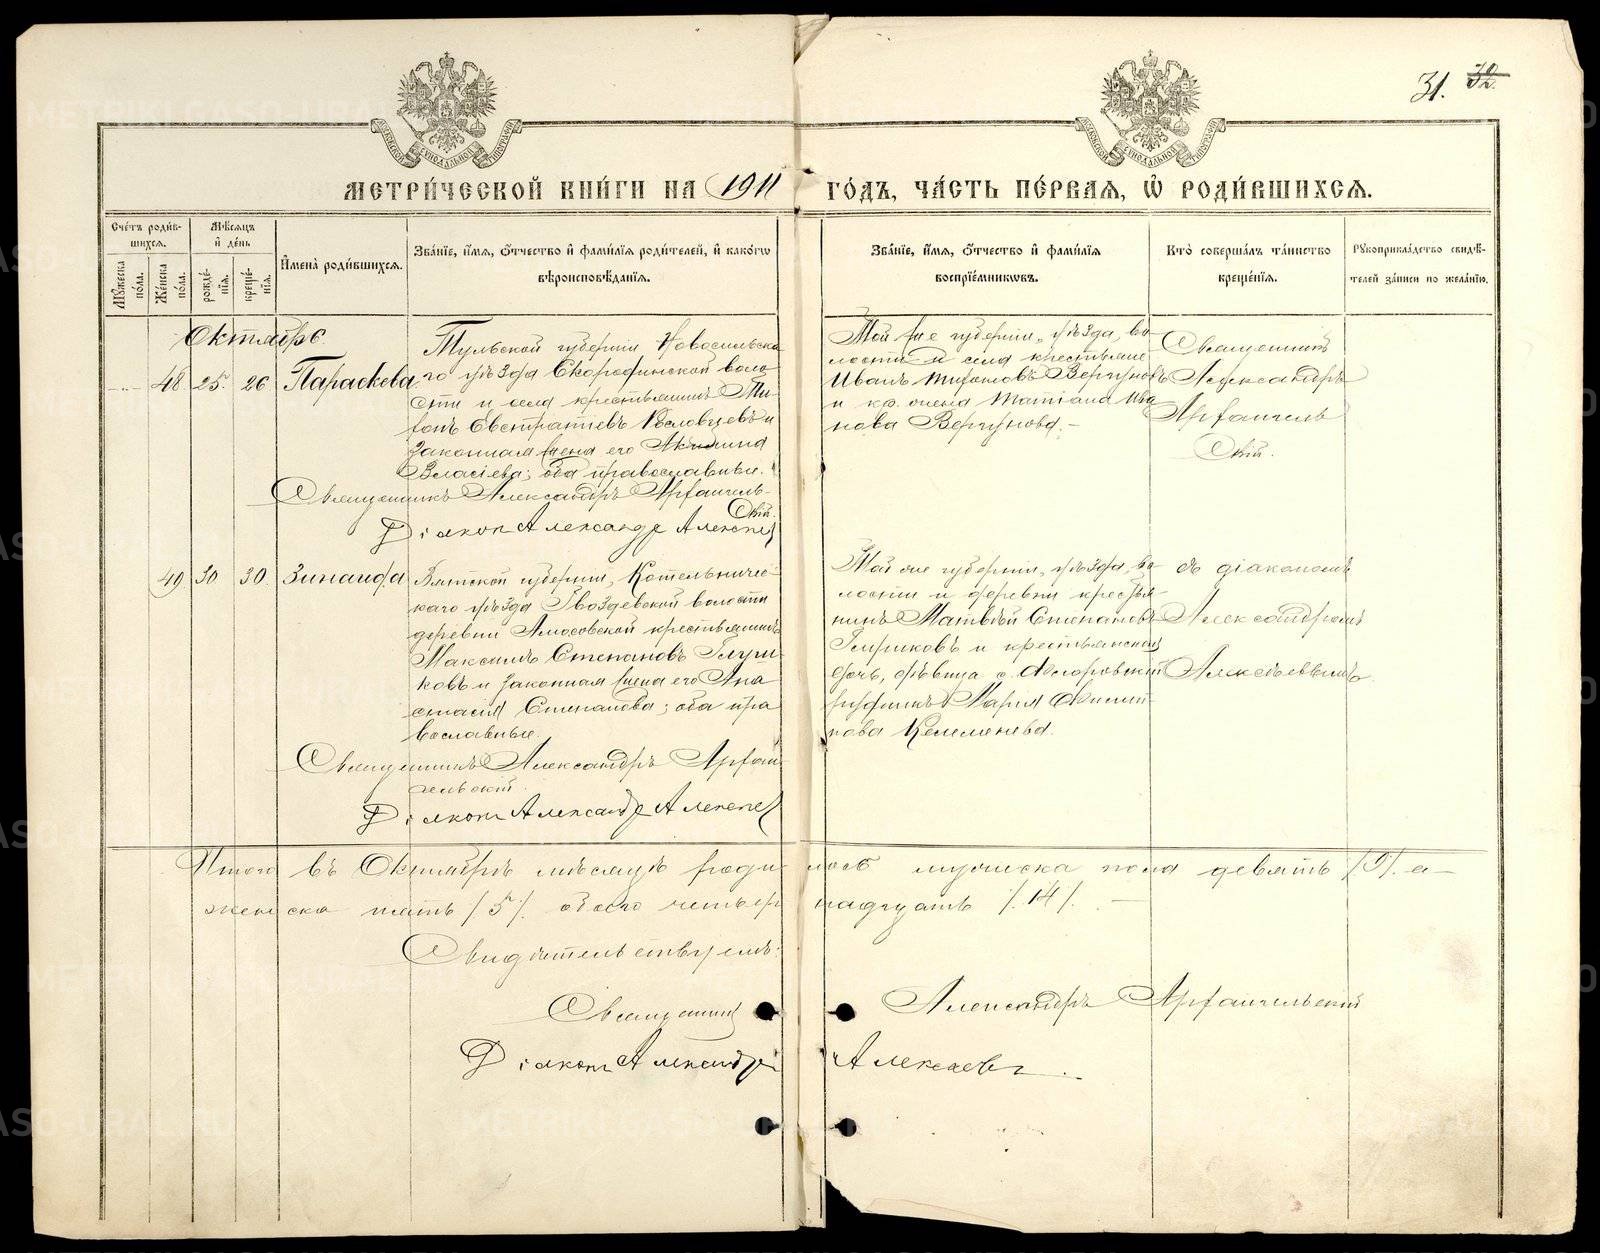 31.
МЕТРИ́ЧЕСКОЙ КНИ́ГИ НА 1911 ГО́ДЪ, ЧА́СТЬ ПЕ́РВАЯ, Ѡ҆ РОДИ́ВШИХСЯ.
Сче́тъ роди́в-
шихся.
Мꙋжеска по́ла.
Же́нска по́ла.
Мѣ́сяцъ
и҆ де́нь
рожде́-
нїя.
креще́-
нїя.
И҆мена̀ роди́вшихся.
Зва́нїе, и҆́мя, ѻ҆́тчество и҆ фами́лїя роди́телей, и҆ како́гѡ
вѣроисповѣ́данїя.
Зва́нїе, и҆́мя, ѻ҆́тчество и҆ фами́лїя
воспрїе́мникѡвъ.
Кто̀ соверша́лъ та́инство
креще́нїя.
Рꙋкоприкла́дство свидѣ́-
телей за́писи по жела́нїю.
Октябрь
48 25. 26 Параскева.
Тульской губерніи Новосильска-
го уѣзда Скородинской воло
сти и села крестьянинъ Ти-
хонъ Евстратіевъ Козловцевъ и
законная жена его Акилина
Власіева; оба православные.
Священникъ Александръ Архангель-
скій.
Діаконъ Александръ Алексѣев
Той же губерніи, уѣзда, во-
лости и села крестьяне
Иванъ Тихоновъ Вергуновъ
и кр. жена Татіана Ива
нова Вергунова. –
Священникъ
Александръ
Архангель
скій.
49 30 30. Зинаида
Вятской губерніи, Котельниче-
каго уѣзда Гвоздевской волости
деревни Амосовской крестьянинъ
Максимъ Степановъ Глуш-
ковъ и законная жена его Ана
стасія Степанова; оба пра
вославные.
Священникъ Александръ Архан-
гельскій.
Діаконъ Александръ Алексѣев
Той же губерніи, уѣзда, во-
лости и деревни крестья-
нинъ Матвѣй Степановъ
Глушковъ и крестьянская
дочь, дѣвица с.
Марія Филип-
пова
съ діакономъ
Александромъ
Алексѣевымъ
Итого въ Октябрѣ мѣсяцѣ родилось мужеска пола девять /9/. а –
женска пять /5/. обоего четырнадцать /.14/. –
Свидѣтельствуемъ:
Священникъ Александръ Архангельскій
Діаконъ Александръ Алексѣевъ.
METRIKI.GASO-URAL.RU